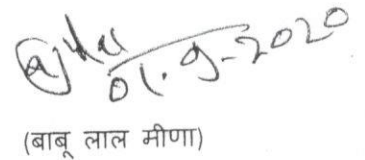 01.9-2020
(बाबू लाल मीणा)